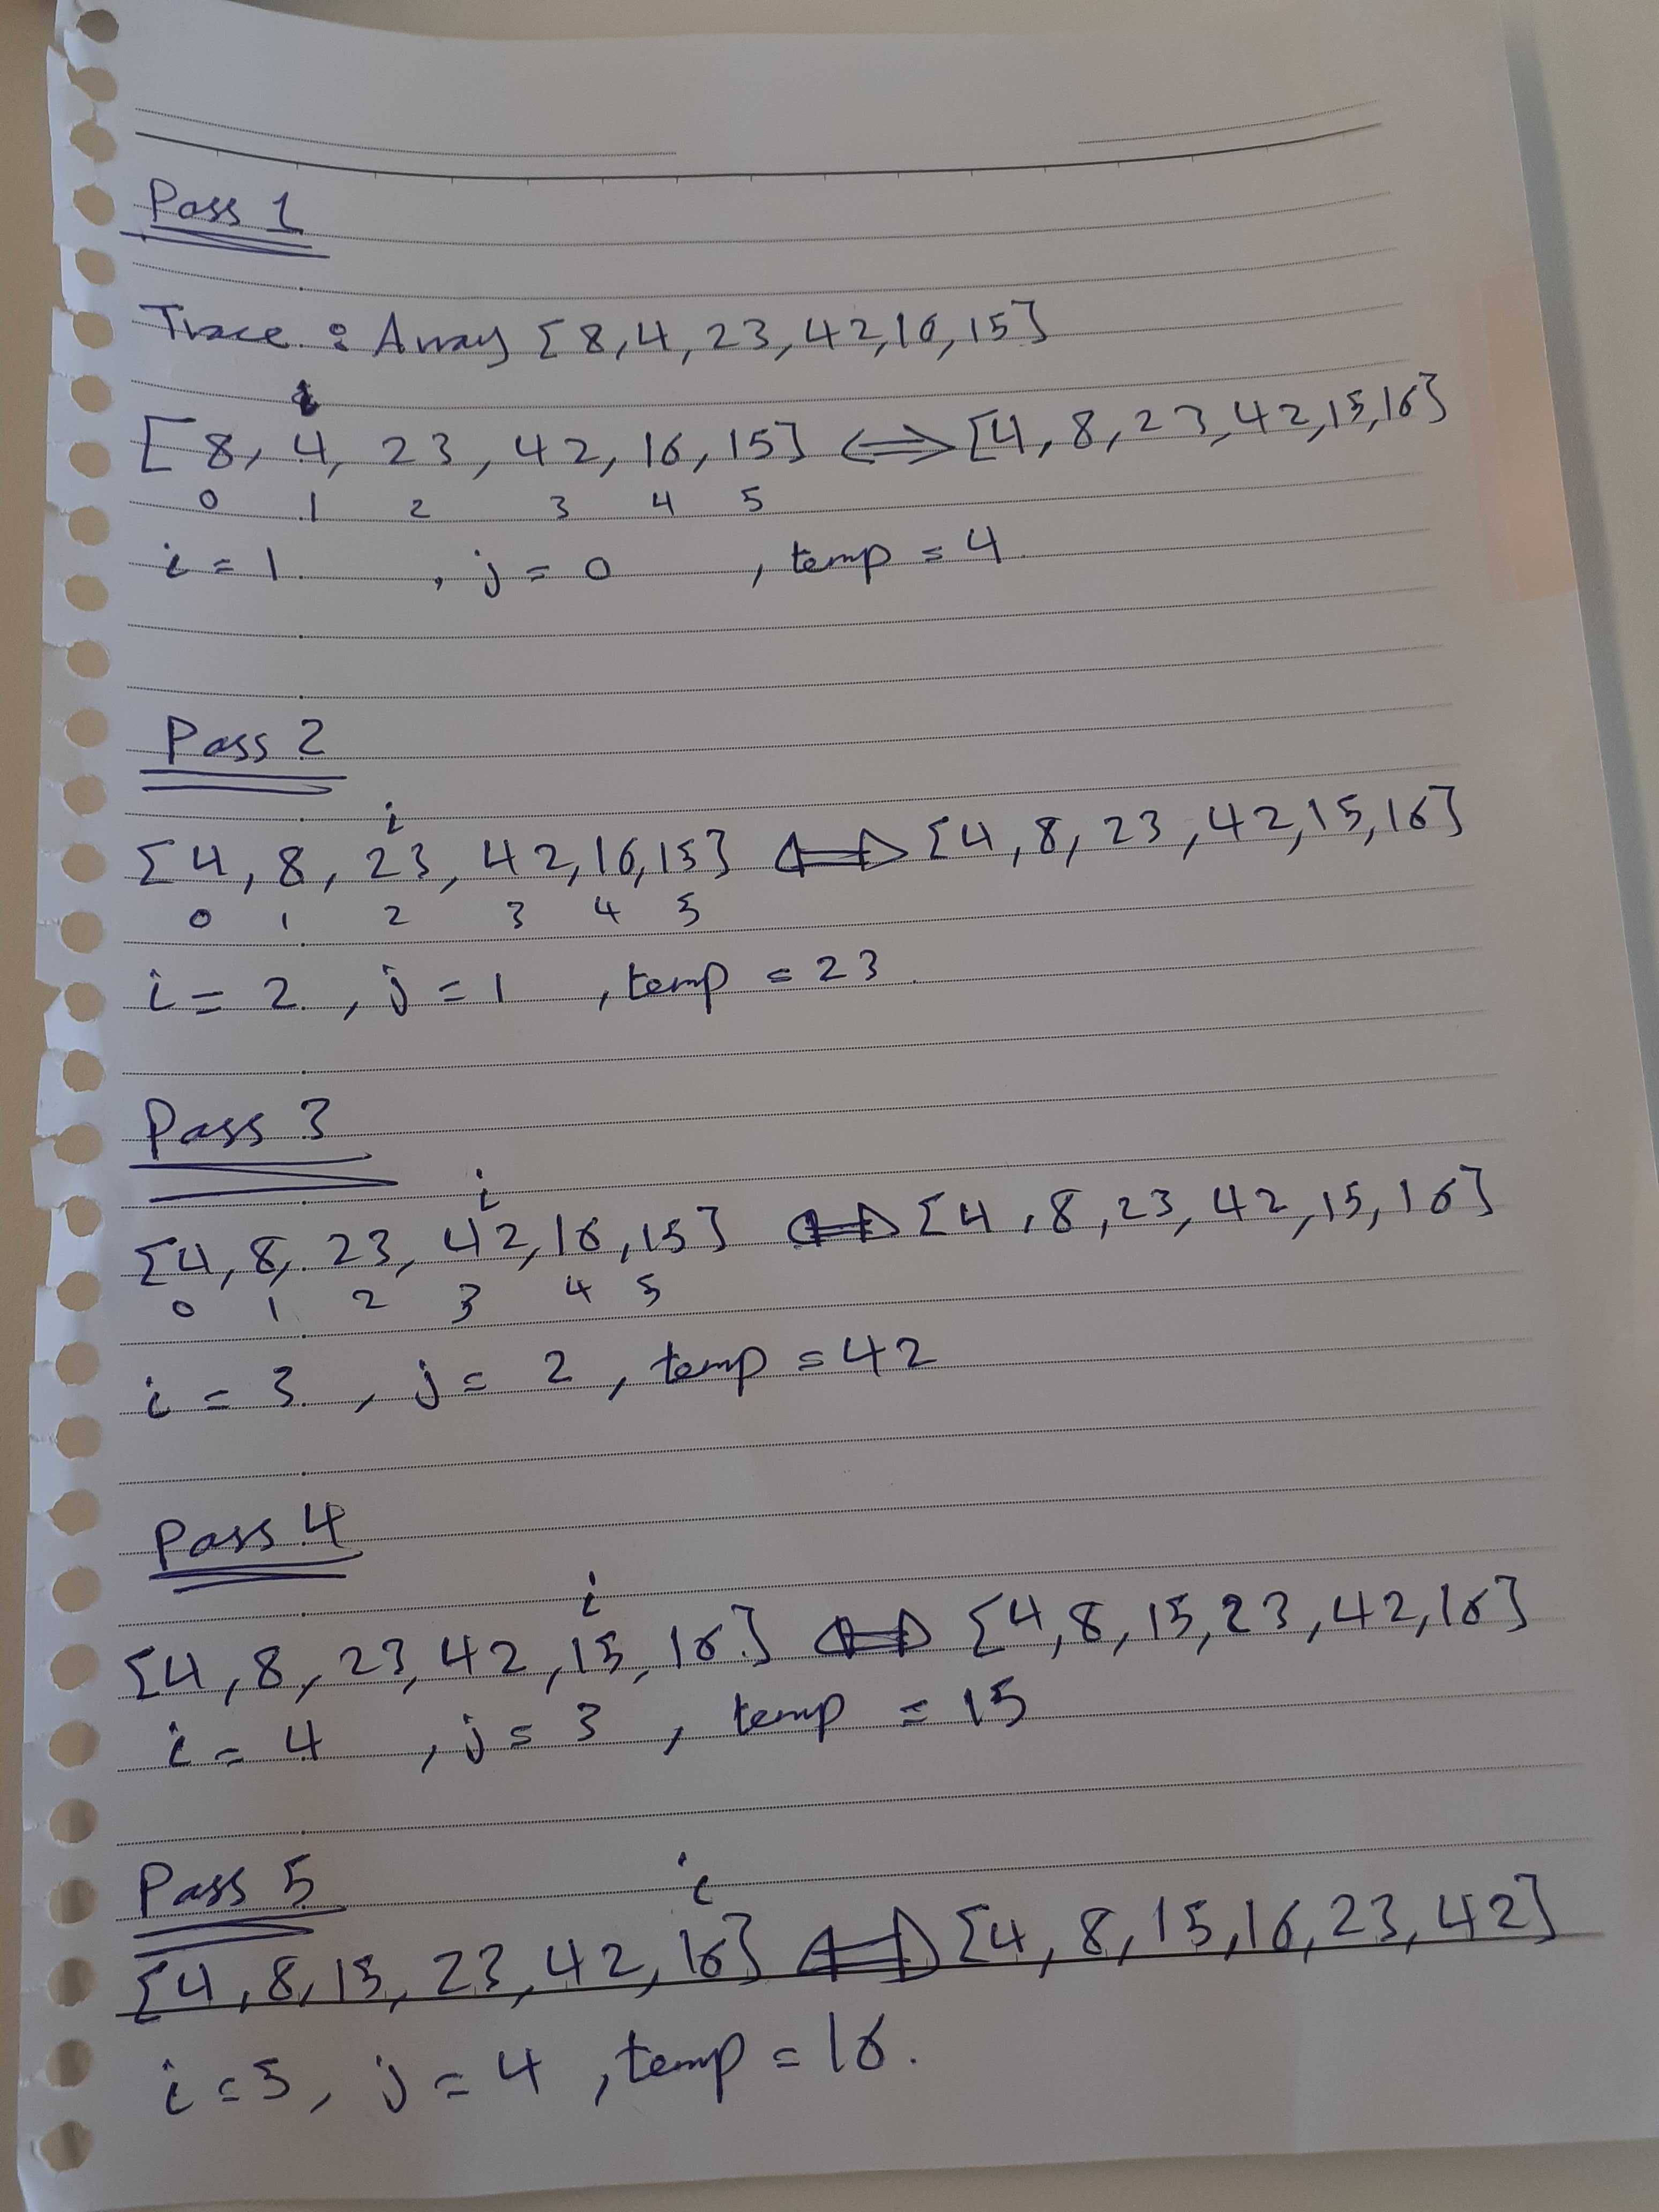 Pass 1
Trace : Array [8,4,23,42,16,15]
i
[8, 4, 23, 42, 16, 15] ⟺ [4,8,23,42,15,16]
0 1 2 3 4 5
i = 1 , j = 0 , temp = 4
Pass 2
i
[4, 8, 23, 42,16,15] ⟺ [4,8,23,42,15,16]
0 1 2 3 4 5
i = 2 , j = 1 , temp = 23
Pass 3
i
[4,8, 23, 42,16,15] ⟺ [4,8,23,42,15,16]
0 1 2 3 4 5
i = 3 , j = 2 , temp = 42
Pass 4
i
[4,8,23,42,15,16] ⟺ [4,8,15,23,42,16]
i = 4 , j = 3 , temp = 15
Pass 5
i
[4,8,15,23,42,16] ⟺ [4,8,15,16,23,42]
i = 5, j = 4 , temp = 16.